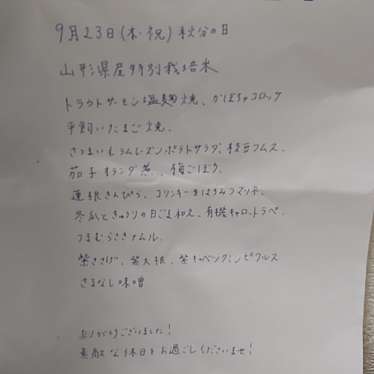 9月23日(木・祝)秋分の日
山形県産特別栽培米
トラウトサーモン塩麹焼、かぼちゃコロッケ
平飼いたまご焼、
さつまいもラムレーズンポテトサラダ、枝豆フムス、
茄子オランダ煮、梅ごぼう、
蓮根きんぴら、コリンキーはちみつマリネ、
冬瓜ときゅうりの白ごま和え、有機キャロットラペ、
うまむらさきナムル、
紫ささげ、紫大根、紫キャベツ ピクルス
さるなし味噌
ありがとうございました!
素敵な休日をお過ごしくださいませ!